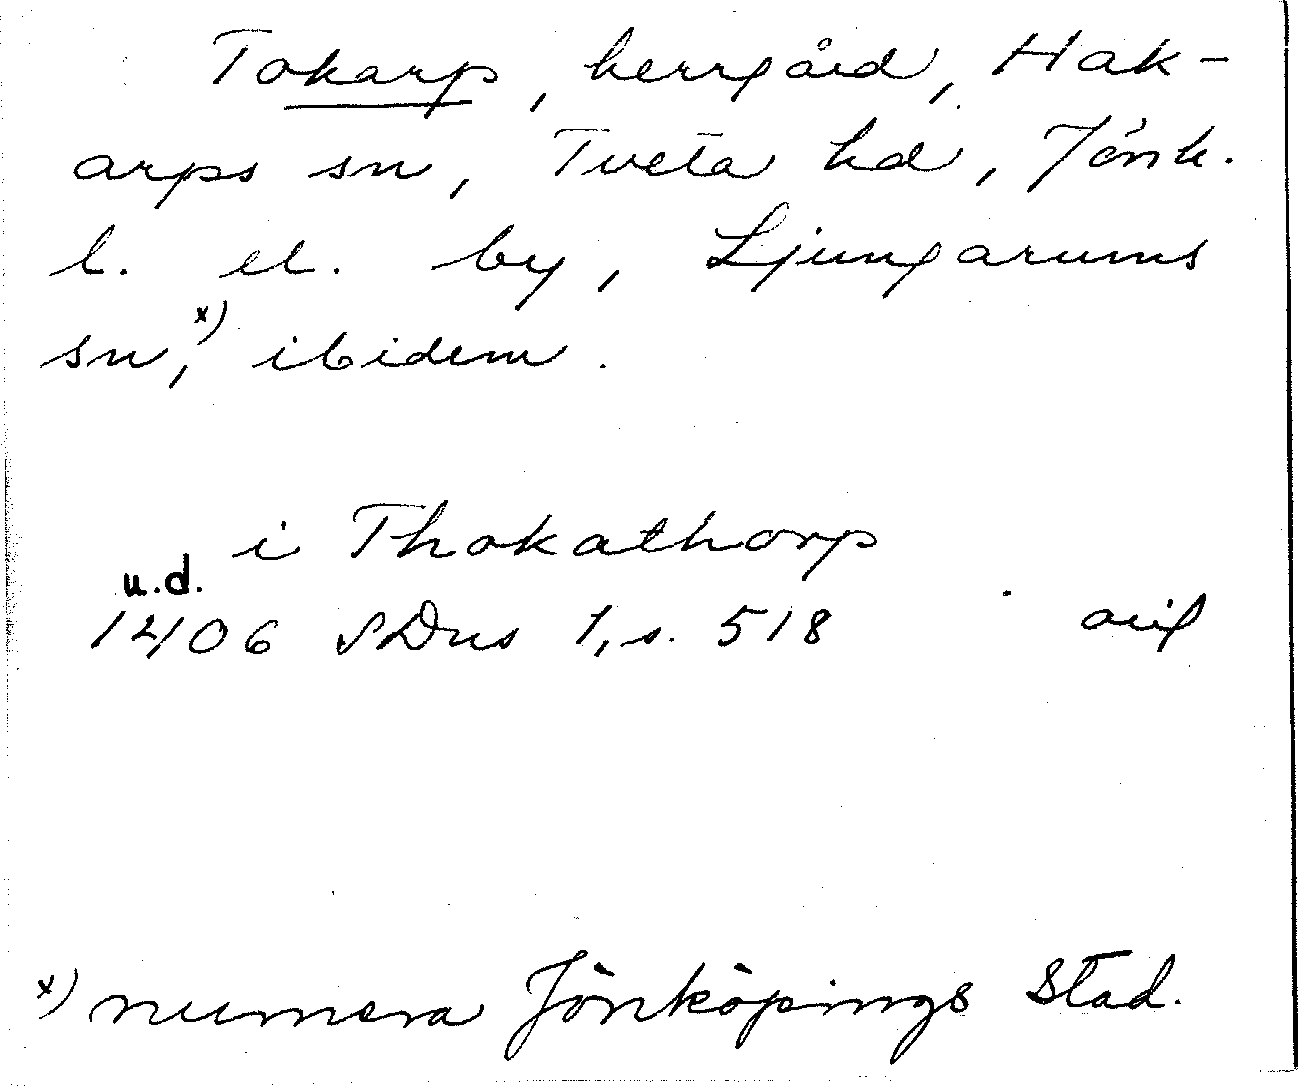 Tokarp, herrgård, Hak-
arps sn, Tveta hd, Jönk.
l. el. by, Ljungarums
sn,x) ibidem.
i Thokathorp
u.d.
1406 SDns 1, s. 518 orig
x) numera Jönköpings stad.